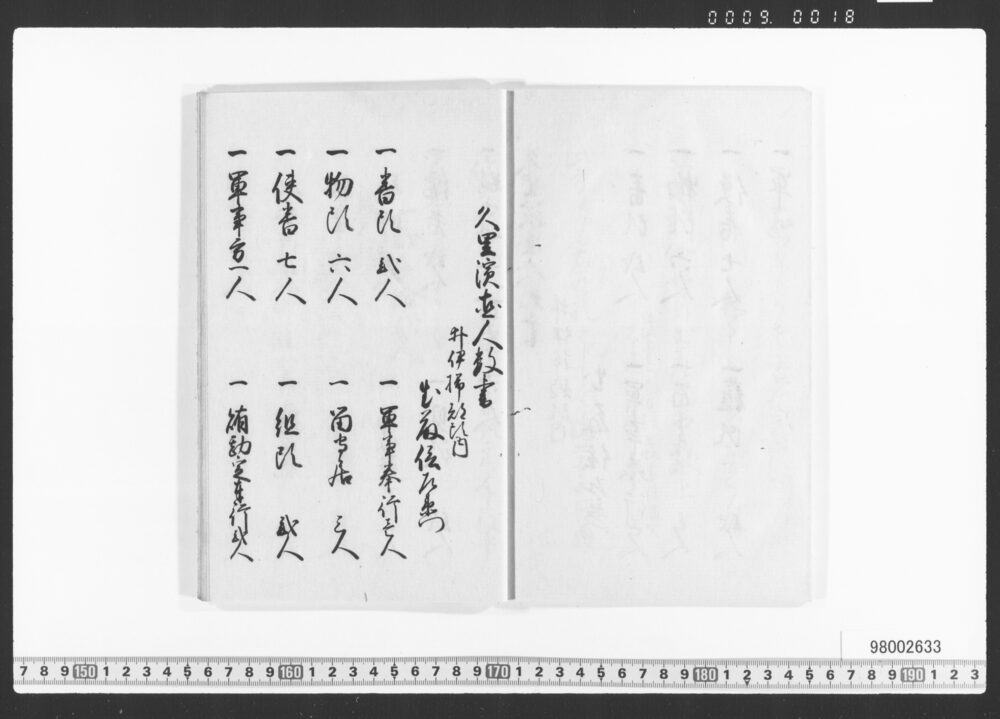 0009. 0018
久里濱出人数書
井伊掃部頭内
一 番頭 弐人
一 軍事奉行三人
一 物頭 六人
一 留守居 三人
一 使番 七人
一 組頭 弐人
一 軍事方一人
一 鋪勘定奉行弐人
98002633
7 8 9 150 1 2 3 4 5 6 7 8 9 160 1 2 3 4 5 6 7 8 9 170 1 2 3 4 5 6 7 8 9 180 1 2 3 4 5 6 7 8 9 190 1 2 3